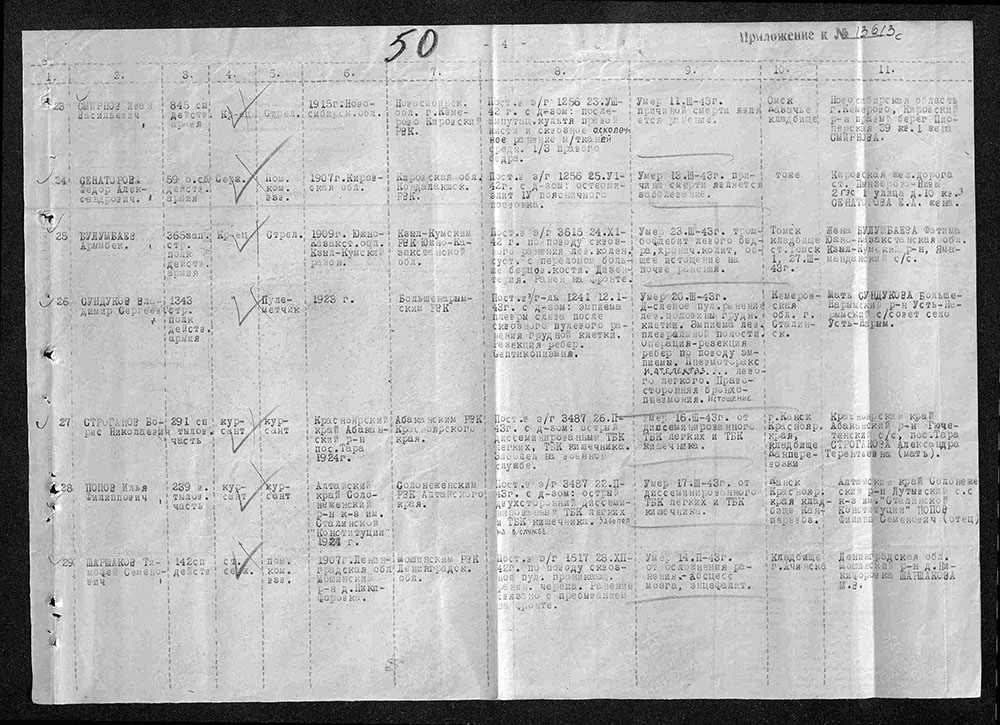 50
- 4 -
Приложение к № 13613с
1. 2. 3. 4. 5. 6. 7. 8. 9. 10. 11.
23 СМИРНОВ Иван
Васильевич
845 сп
действ.
армия
Кр-ец
Стрел.
1915г.Ново-
сибирск.обл.
Новосибирск.
обл. г.Кеме-
рово Кировский
РВК.
Пост.в э/г 1256 23.УШ-
42 г. с д-зом: после-
ампутац.культя правой
и сквозное осколоч
ное ранение м/тканей
средн. 1/3 правого
бедра.
Умер 11.Ш-43г.
причиной смерти явля
ется ранение.
Омск
казачье
кладбище
Новосибирская область
г.Кемерово, Кировский
р-н правый берег Пио-
нерская 39 кв.1 жена
СМИРНОВА.
24 СЕНАТОРОВ
Федор Алек-
сандрович.
действ.
армия
Серж.
Пом.
ком.
взв.
1907г.Киров-
ская обл.
Кировская обл.
РВК.
Пост.в э/г 1256 25.У1-
42г. с д-зом: остеоми-
элит 1У поясничного
позвонка.
Умер 13.Ш-43г. при-
чина смерти является
заболевание.
тоже
Кировская жел.дорога
ст.
1 улица д.10 кв.3
СЕНАТОРОВА Е.А. жена.
25 БУЛУМБАЕВ
365зап.
стр.
полк
действ.
армия
Кр-ец
Стрел.
1909г. Южно-
Казахст.обл.
Кзыл-Кумский
район.
Кзыл-Кумским
РВК Южно-Ка-
захстанской
обл.
Пост.в э/г 3615 24.Х1-
42 г. по поводу сквоз-
ного ранения лев.колен.
суст. с переломом боль-
ше берцов.кости. Дизен-
терия. Ранен на фронте.
Умер 23.Ш-43г. тром-
бофлебит левого бед-
ра,хронич.колит, об-
щее истощение на
почве ранения.
Томск
кладбище
ст.Томск
1, 27.Ш-
43г.
Жена БУЛУМБАЕВА Фатима
Южно-Казахстанская обл.
Кзыл-Кумский р-н, Яма-
манданский с/с.
26 СУНДУКОВ Вла-
димир Сергеев.
1343
стр.
полк
действ.
армия
Пуле-
метчик
1923 г.
Большенарым-
ским РВК
Пост.в/г-ль 1241 12.1-
43г. с д-зом: эмпиема
плевры слева после
сквозного пулевого ра-
нения грудной клетки.
Резекция ребер.
Септикопиэмия.
Умер 20.Ш-43г.
Д-слепое пул.ранение
лев.половины грудн.
клетки. Эмпиема лев.
плевральной полости.
Операция-резекция
ребер по поводу эм-
пиемы. Пневмоторакс
и ателектаз... лево-
го легкого. Право-
сторонняя бронхо-
пневмония. Истощение.
Кемеров-
ская
обл. г.
Сталин-
ск.
Мать СУНДУКОВА Больше-
Нарымский р-н Усть-На-
рымский с/совет село
Усть-Нарым.
27 СТРОГАНОВ Бо-
рис Николаевич
291 сп
тылов.
часть
кур-
сант
кур-
сант
Красноярский
край Абакан-
ский р-н
пос.Тара
1924г.
Абаканским РВК
Красноярского
края.
Пост.в э/г 3487 26.П-
43г. с д-зом: острый
диссеминированный ТБК
легких, ТБК кишечника.
Заболел на военной
службе.
Умер 16.Ш-43г. от
диссеминированного
ТБК легких и ТБК
кишечника.
г.Канск
Краснояр.
края,
кладбище
Канпере-
возки
Красноярский край
Абаканский р-н
с/с, пос.Тара
СТРОГАНОВА Александра
Терентьевна (мать).
28 ПОПОВ Илья
Филиппович
239 п
тылов.
часть
кур-
сант
кур-
сант
Алтайский
край Соло-
неженский
р-н к-з им.
Сталинской
"Конституции"
1924 г.
Солонеженским
РВК Алтайского
края.
Пост.в э/г 3487 22.П-
43г. с д-зом: острый
двухсторонний диссеми-
нированный ТБК легких
и ТБК кишечника. Заболел
на в/службе
Умер 17.Ш-43г. от
диссеминированного
ТБК легких и ТБК
кишечника.
Канск
Краснояр.
края клад-
бище Кан-
перевоз.
Алтайский край Солонеже
ский р-н Лутывский с.с
к-з им."Сталинской
Конституции" ПОПОВ
Филипп Семенович (отец)
29 ШАРШАКОВ Ти-
мофей Семено-
вич
142сп
действ
ст.
серж.
Пом.
ком.
взв.
1907г.Ленин-
градская обл
Мошинский
р-н д.Ники-
форовка.
Мошинским РВК
Ленинградск.
обл.
Пост.в э/г 1517 28.ХП-
42г. по поводу сквоз-
ное пул. проникающ.
ранен. черепа. Ранение
связано с пребыванием
на фронте.
Умер 14.П-43г.
от осложнения ра-
нения.-Абсцесс
мозга, энцефалит.
Кладбище
г.Ачинска
Ленинградская обл.
Мошинский р-н д.Ни-
кифоровка ШАРШАКОВА
М.В.